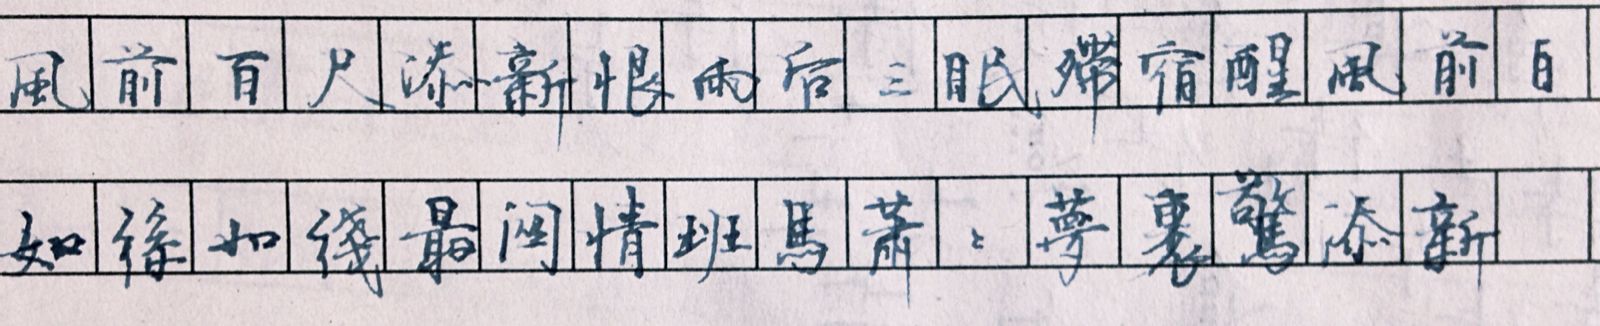 風前百尺添新恨雨后三眠殢宿醒風前百
如絲如綫最関情班馬蕭〻夢裏驚添新